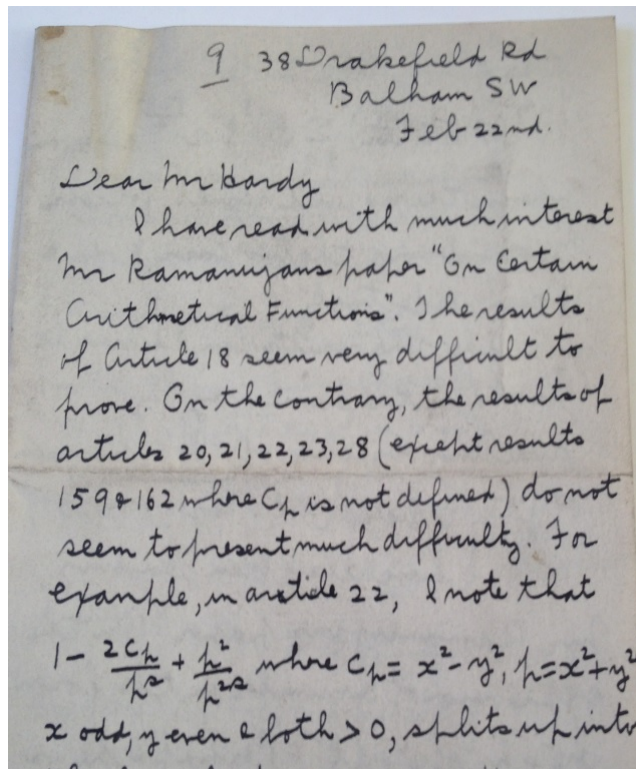 9 38 Drakefield Rd
Balham SW
Feb 22nd.
Dear Mr Hardy
I have read with much interest
Mr Ramanujans paper "On Certain
Arithmetical Functions". The results
of Article 18 seem very difficult to
prove. On the contrary, the results of
articles 20, 21, 22, 23, 28 (except results
159 & 162 where Cₚ is not defined) do not
seem to present much difficulty. For
example, in article 22, I note that
1 - 2Cₚ/pˢ + p²/p²ˢ where Cₚ = x² - y², p = x² + y²
x odd, y even & both > 0, splits up into